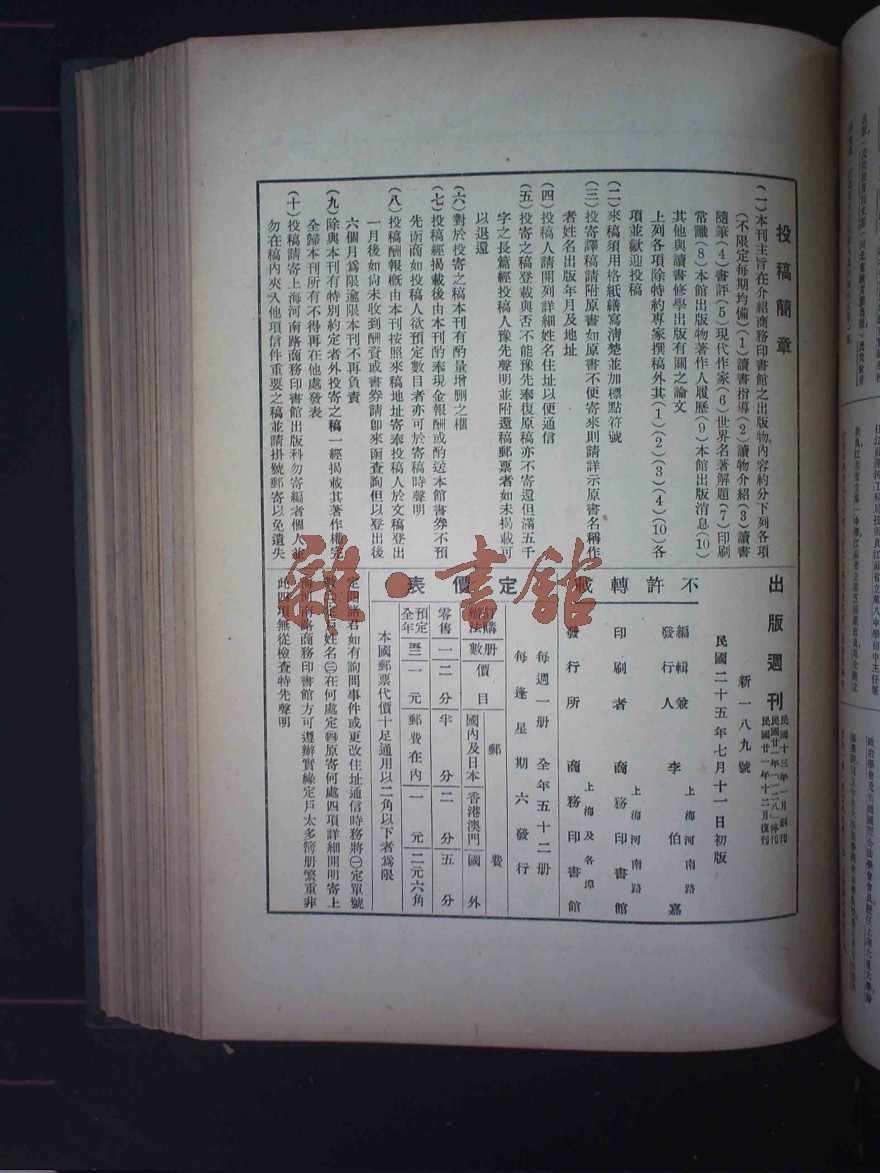 投稿簡章
(一)本刊主旨在介紹商務印書館之出版物內容約分下列各項
(不限定每期均備)(1)讀書指導(2)讀物介紹(3)讀書
隨筆(4)書評(5)現代作家(6)世界名著解題(7)印刷
常識(8)本館出版物著作人履歷(9)本館出版消息(10)
其他與讀書修學出版有關之論文
上列各項除特約專家撰稿外其(1)(2)(3)(4)(10)各
項並歡迎投稿
(二)來稿須用格紙繕寫清楚並加標點符號
(三)投寄譯稿請附原書如原書不便寄來則請詳示原書名稱作
者姓名出版年月及地址
(四)投稿人請開列詳細姓名住址以便通信
(五)投寄之稿登載與否不能豫先奉復原稿亦不寄還但滿五千
字之長篇經投稿人豫先聲明並附還稿郵票者如未揭載可
以退還
(六)對於投寄之稿本刊有酌量增删之權
(七)投稿經揭載後由本刊酌奉現金報酬或酌送本館書券不預
先函商如投稿人欲預定數目者亦可於寄稿時聲明
(八)投稿酬報概由本刊按照來稿地址寄奉投稿人於文稿登出
一月後如尙未收到酬資或書券請卽來函查詢但以登出後
六個月爲限逾限本刊不再負責
(九)除與本刊有特別約定者外投寄之稿一經揭載其著作權完
全歸本刊所有不得再在他處發表
(十)投稿請寄上海河南路商務印書館出版科勿寄編者個人並
勿在稿內夾入他項信件重要之稿並請掛號郵寄以免遺失
出版週刊
民國十三年一月創刊
民國廿一年「一二八」停刊
民國廿一年十二月復刊
新一八九號
民國二十五年七月十一日初版
不許轉載
編輯兼發行人 上海河南路 李伯嘉
印刷者 上海河南路 商務印書館
發行所 上海及各埠 商務印書館
定價表
每週一册 全年五十二册
每逢星期六發行
訂購辦法 册數 價目 郵費 國內及日本 香港澳門 國外
零售 一 二分 半分 二分 五分
預定全年 一元 郵費在內 一元 二元六角
本國郵票代價十足通用以二角以下者爲限
定閱諸君如有詢問事件或更改住址通信時務將㊀定單號
數㊁定戶姓名㊂在何處定㊃原寄何處四項詳細開明寄上
海河南路商務印書館方可遵辦實緣定戶太多簿册繁重非
此四項無從檢查特先聲明